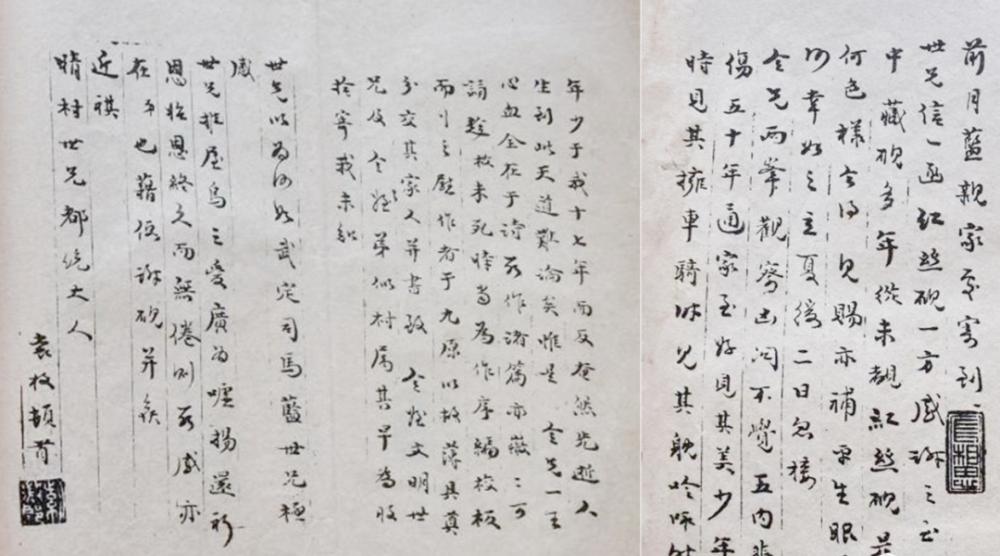 前月藍親家處寄到
世兄信一函紅絲硯一方感謝之至
中藏硯多年從未覩紅絲硯是
何色樣今得見賜亦補平生眼
何幸如之立夏後二日忽接
令兄兩峯觀察凶问不覺五内悲
傷五十年通家至好見其美少年
時見其擁車騎時見其觥吟咏
年少于我十七年而反奄然先逝人
生到此天道難論矣惟是令兄一生
心血全在于詩所作諸篇亦可
誦趁枚未死時當為作序編校板
而行之慰作者于九原以故薄具奠
分交其家人并書致令姪文明世
兄及令弟似村属其早為收
拾寄我未知
世兄以為何如武定司馬藍世兄極
感
世兄推屋烏之愛廣為噓揚還祈
恩始恩終久而無倦則感亦
在下也藉伻謝硯并候
近祺
晴村世兄都統大人
袁枚頓首